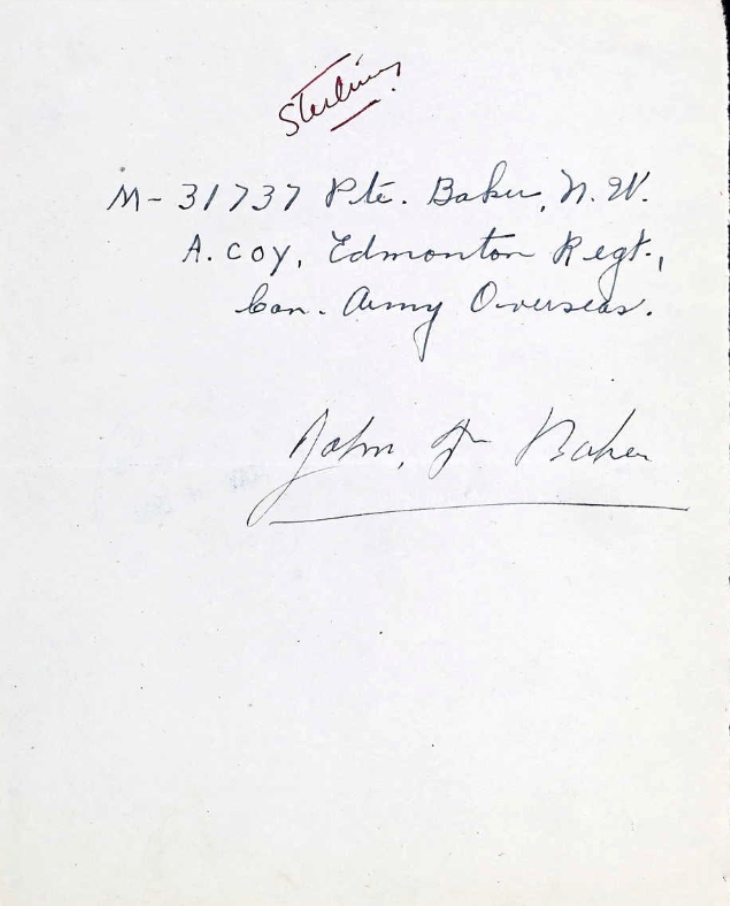 Sterling
M-31737 Pte. Baker, N.W.
A. Coy, Edmonton Regt.,
Can. Army Overseas.
John, Baker